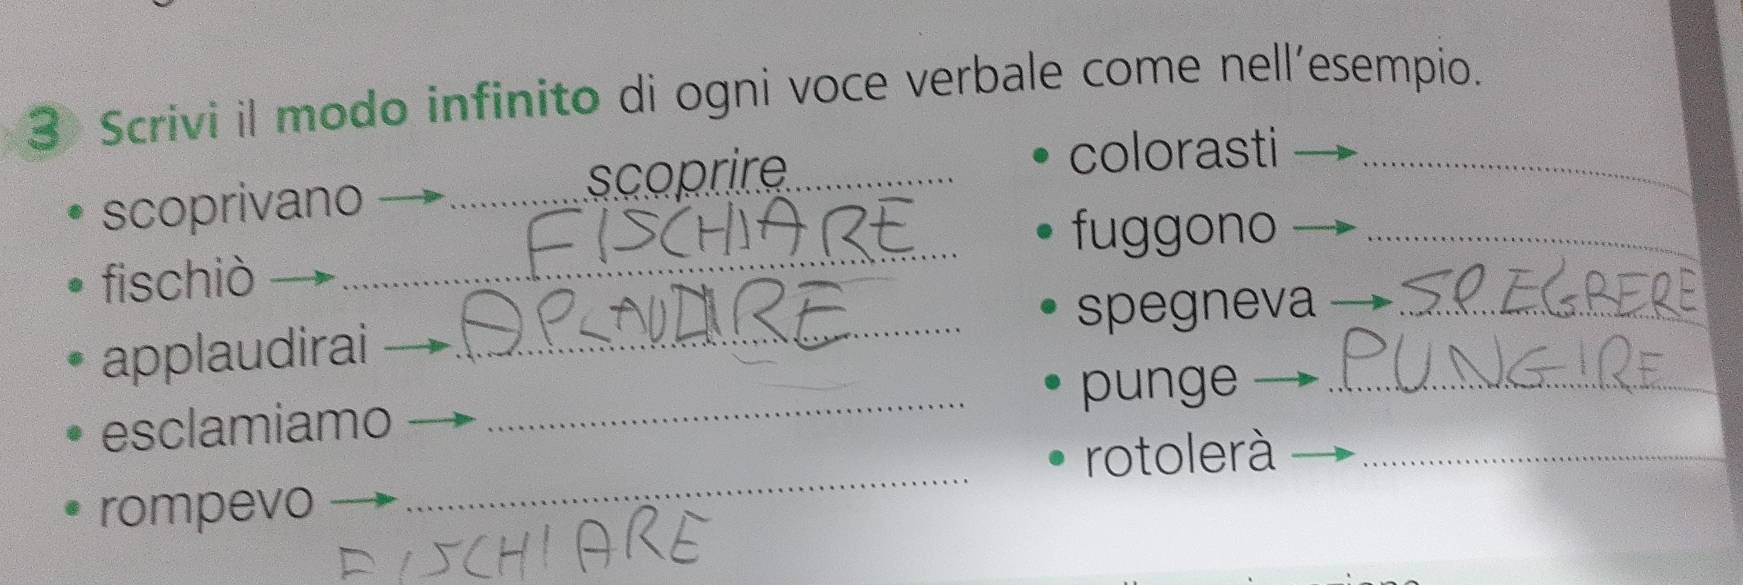 3 Scrivi il modo infinito di ogni voce verbale come nell'esempio.
• scoprivano → scoprire
• fischiò → FISCHIARE
• applaudirai → APLAUDIRE
• esclamiamo →
• rompevo →
FISCHIARE
• colorasti →
• fuggono →
• spegneva → SPEGRERE
• punge → PUNGIRE
• rotolerà →